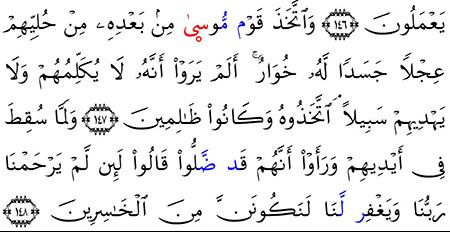 يَعْمَلُونَ ١٤٦ وَٱتَّخَذَ قَوْم مُّوسىٰ مِنۢ بَعْدِهِۦ مِنْ حُلِيِّهِمْ
عِجْلًا جَسَدًا لَّهُۥ خُوَارٌ ۚ أَلَمْ يَرَوْا۟ أَنَّهُۥ لَا يُكَلِّمُهُمْ وَلَا
يَهْدِيهِمْ سَبِيلًا ۘ ٱتَّخَذُوهُ وَكَانُوا۟ ظَٰلِمِينَ ١٤٧ وَلَمَّا سُقِطَ
فِى أَيْدِيهِمْ وَرَأَوْا۟ أَنَّهُمْ قَد ضَّلُّوا۟ قَالُوا۟ لَئِن لَّمْ يَرْحَمْنَا
رَبُّنَا وَيَغْفِر لَّنَا لَنَكُونَنَّ مِنَ ٱلْخَٰسِرِينَ ١٤٨